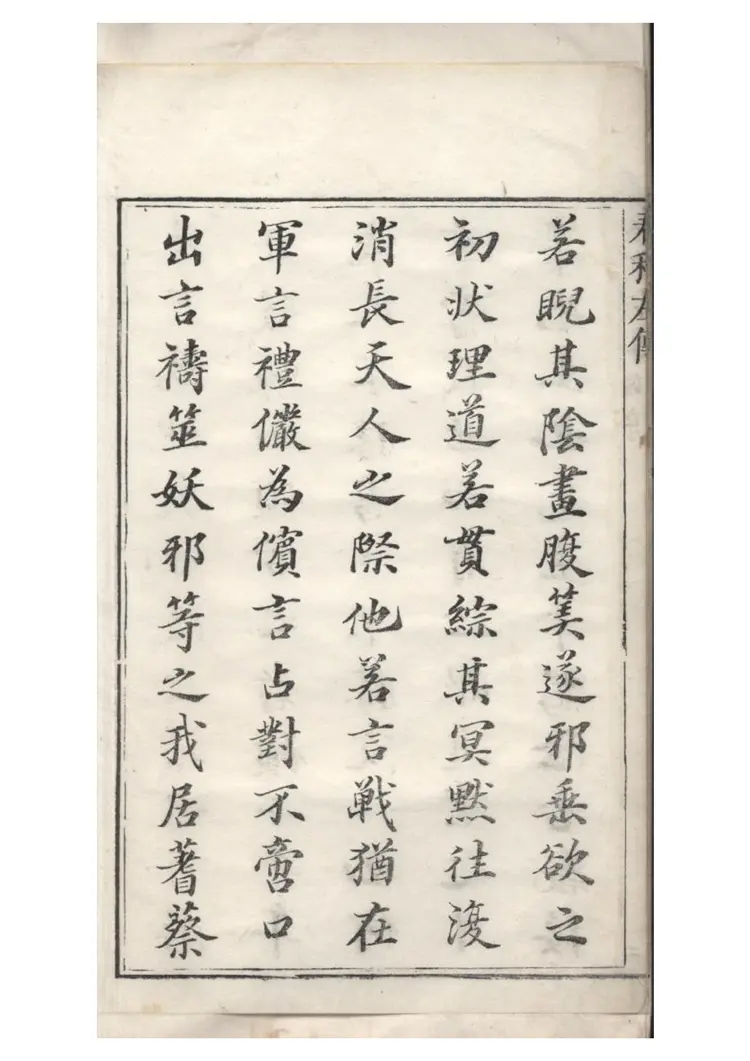 春秋左傳
若睨其陰畫腹筭遂邪垂欲之
初狀理道若貫綜其冥黙往復
消長天人之際他若言戰猶在
軍言禮儼為儐言占對不啻口
出言禱筮妖邪等之我居蓍蔡